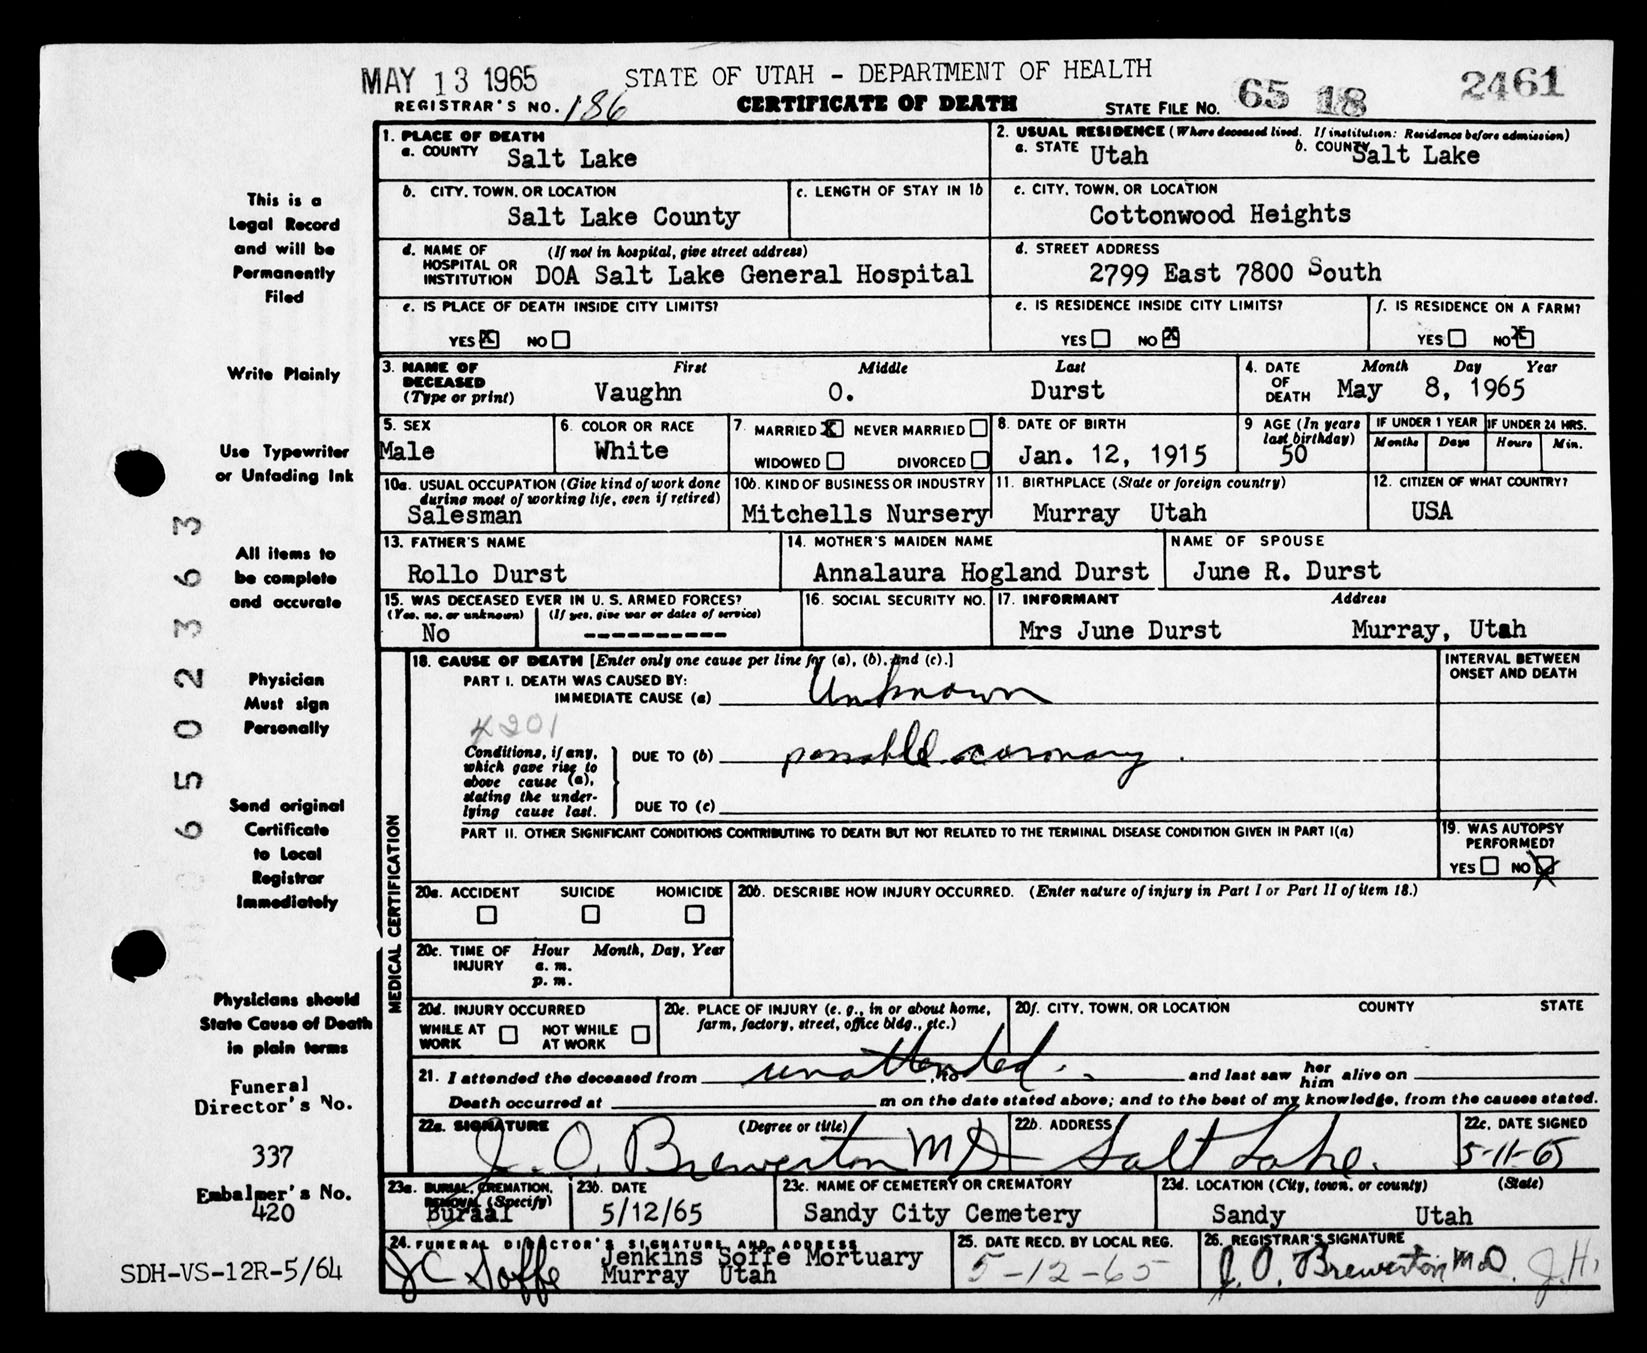 MAY 13 1965
STATE OF UTAH - DEPARTMENT OF HEALTH
REGISTRAR'S NO. 186
CERTIFICATE OF DEATH
STATE FILE NO. 65 18 2461
This is a
Legal Record
and will be
Permanently
Filed
Write Plainly
Use Typewriter
or Unfading Ink
All items to
be complete
and accurate
Physician
Must sign
Personally
Send original
Certificate
to Local
Registrar
Immediately
Physicians should
State Cause of Death
in plain terms
Funeral
Director's No.
337
Embalmer's No.
420
SDH-VS-12R-5/64
6502363
1. PLACE OF DEATH
a. COUNTY Salt Lake
b. CITY, TOWN, OR LOCATION
Salt Lake County
c. LENGTH OF STAY IN 1b
d. NAME OF HOSPITAL OR INSTITUTION (If not in hospital, give street address)
DOA Salt Lake General Hospital
e. IS PLACE OF DEATH INSIDE CITY LIMITS?
YES X NO
2. USUAL RESIDENCE (Where deceased lived. If institution: Residence before admission)
a. STATE Utah b. COUNTY Salt Lake
c. CITY, TOWN, OR LOCATION
Cottonwood Heights
d. STREET ADDRESS
2799 East 7800 South
e. IS RESIDENCE INSIDE CITY LIMITS?
YES NO X
f. IS RESIDENCE ON A FARM?
YES NO X
3. NAME OF DECEASED (Type or print)
First Middle Last
Vaughn O. Durst
4. DATE OF DEATH Month Day Year
May 8, 1965
5. SEX
Male
6. COLOR OR RACE
White
7. MARRIED X NEVER MARRIED
WIDOWED DIVORCED
8. DATE OF BIRTH
Jan. 12, 1915
9 AGE (In years last birthday)
50
IF UNDER 1 YEAR IF UNDER 24 HRS.
Months Days Hours Min.
10a. USUAL OCCUPATION (Give kind of work done during most of working life, even if retired)
Salesman
10b. KIND OF BUSINESS OR INDUSTRY
Mitchells Nursery
11. BIRTHPLACE (State or foreign country)
Murray Utah
12. CITIZEN OF WHAT COUNTRY?
USA
13. FATHER'S NAME
Rollo Durst
14. MOTHER'S MAIDEN NAME
Annalaura Hogland Durst
NAME OF SPOUSE
June R. Durst
15. WAS DECEASED EVER IN U. S. ARMED FORCES?
(Yes, no, or unknown) (If yes, give war or dates of service)
No ----------
16. SOCIAL SECURITY NO.
17. INFORMANT Address
Mrs June Durst Murray, Utah
MEDICAL CERTIFICATION
18. CAUSE OF DEATH [Enter only one cause per line for (a), (b), and (c).]
PART I. DEATH WAS CAUSED BY:
IMMEDIATE CAUSE (a) Unknown
4201
Conditions, if any, which gave rise to above cause (a), stating the underlying cause last.
DUE TO (b) possible coronary.
DUE TO (c)
INTERVAL BETWEEN ONSET AND DEATH
PART II. OTHER SIGNIFICANT CONDITIONS CONTRIBUTING TO DEATH BUT NOT RELATED TO THE TERMINAL DISEASE CONDITION GIVEN IN PART I(a)
19. WAS AUTOPSY PERFORMED?
YES NO X
20a. ACCIDENT SUICIDE HOMICIDE
20b. DESCRIBE HOW INJURY OCCURRED. (Enter nature of injury in Part I or Part II of item 18.)
20c. TIME OF INJURY Hour Month, Day, Year
a. m.
p. m.
20d. INJURY OCCURRED
WHILE AT WORK NOT WHILE AT WORK
20e. PLACE OF INJURY (e. g., in or about home, farm, factory, street, office bldg., etc.)
20f. CITY, TOWN, OR LOCATION COUNTY STATE
21. I attended the deceased from unattended to and last saw her him alive on
Death occurred at m on the date stated above; and to the best of my knowledge, from the causes stated.
22a. SIGNATURE (Degree or title)
J. O. Brewerton MD
22b. ADDRESS
Salt Lake.
22c. DATE SIGNED
5-11-65
23a. BURIAL, CREMATION, REMOVAL (Specify)
Buraal
23b. DATE
5/12/65
23c. NAME OF CEMETERY OR CREMATORY
Sandy City Cemetery
23d. LOCATION (City, town, or county) (State)
Sandy Utah
24. FUNERAL DIRECTOR'S SIGNATURE AND ADDRESS
JC Soffe Jenkins Soffe Mortuary
Murray Utah
25. DATE RECD. BY LOCAL REG.
5-12-65
26. REGISTRAR'S SIGNATURE
J. O. Brewerton M.D. J.H.